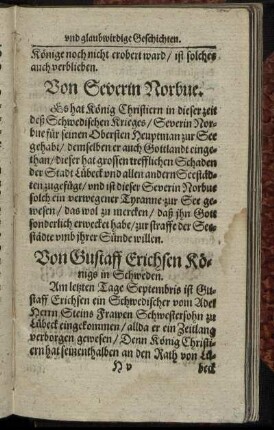 vnd glaubwirdige Geschichten.
Könige noch nicht erobert ward / ist solches
auch verblieben.
Von Severin Norbue.
Es hat König Christiern in dieser zeit
deß Schwedischen Krieges / Severin Nor-
bue für seinen Obersten Heuptman zur See
gehabt / demselben er auch Gottlandt einge-
than / dieser hat grossen trefflichen Schaden
der Stadt Lübeck vnd allen andern Seestäd-
ten zugefügt / vnd ist dieser Severin Norbue
solch ein verwegener Tyranne zur See ge-
wesen / das wol zu mercken / daß jhn Gott
sonderlich erwecket habe / zur straffe der See-
städte vmb jhrer Sünde willen.
Von Gustaff Erichsen Kö-
nigs in Schweden.
Am letzten Tage Septembris ist Gu-
staff Erichsen ein Schwedischer vom Adel
Herrn Steins Frawen Schwestersohn zu
Lübeck eingekommen / allda er ein Zeitlang
verborgen gewesen / Denn König Christi-
ern hat seinenthalben an den Rath von Lü-
H v beck